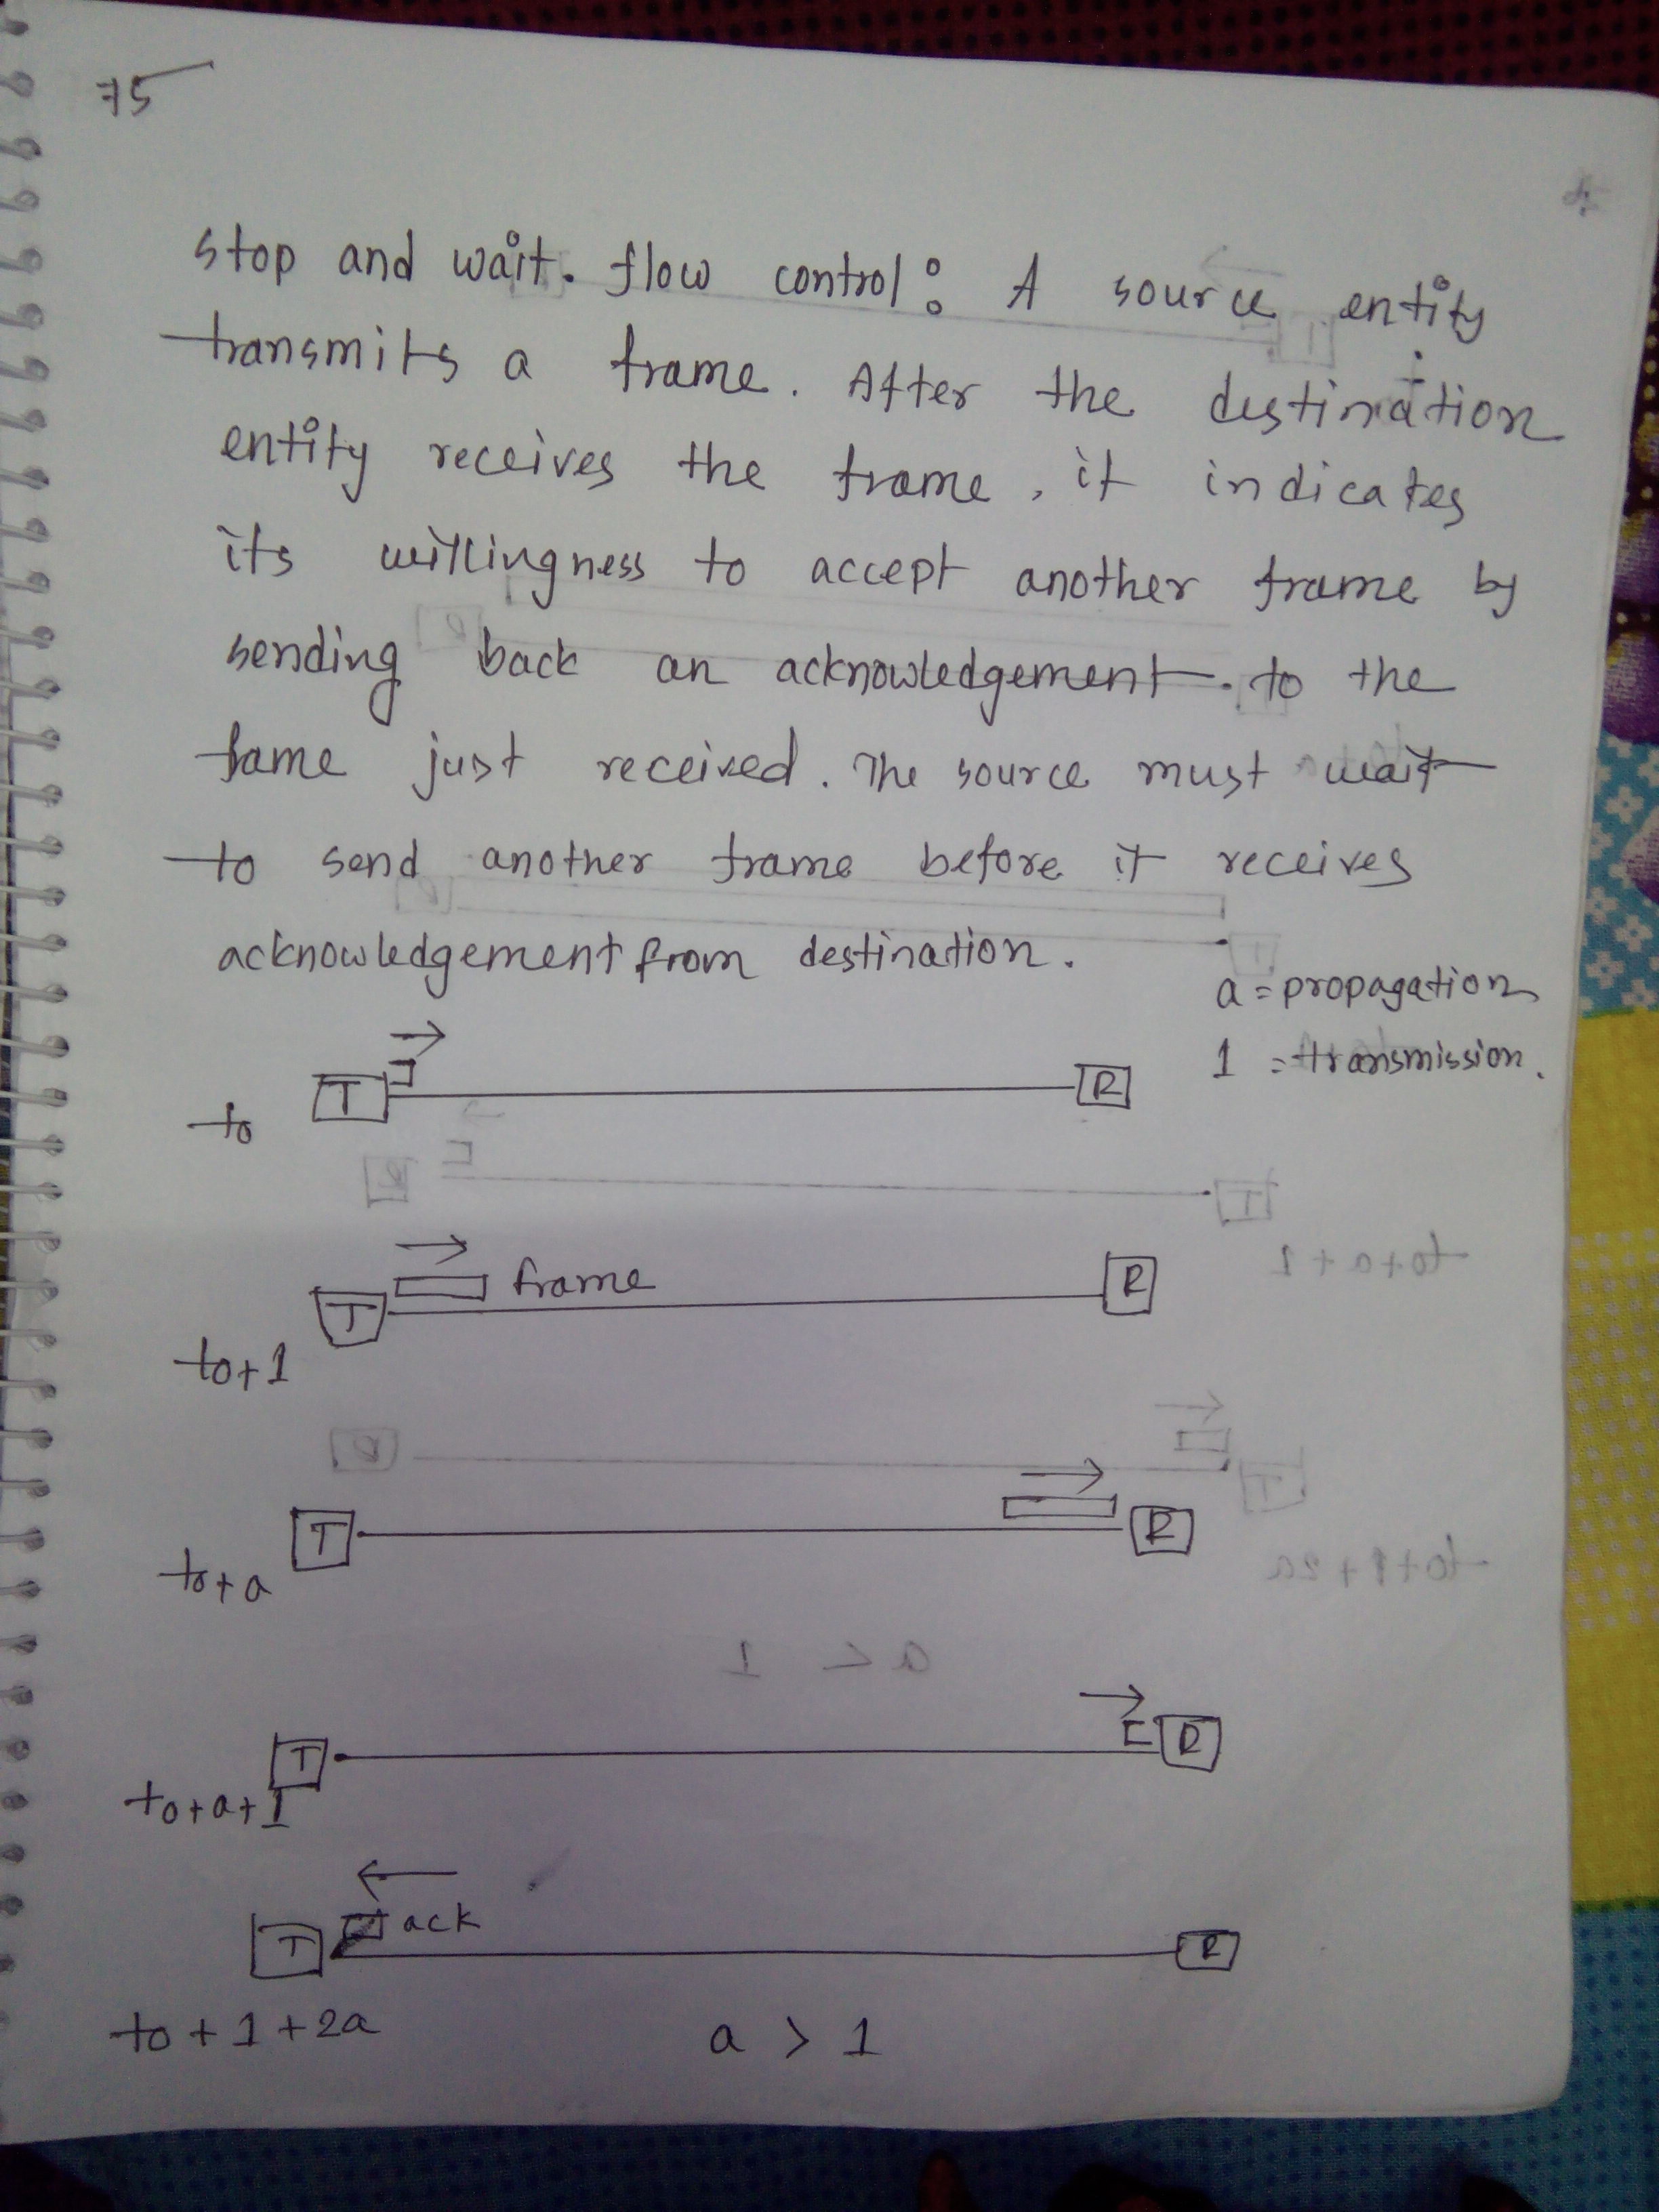 75
stop and wait. flow control: A source entity
transmits a frame. After the destination
entity receives the frame, it indicates
its willingness to accept another frame by
sending back an acknowledgement. to the
fame just received. The source must wait
to send another frame before it receives
acknowledgement from destination.
a = propagation
1 = transmission.
T R
t0
frame
T R
t0+1
T R
t0+a
T R
t0+a+1
ack
T R
t0+1+2a
a > 1